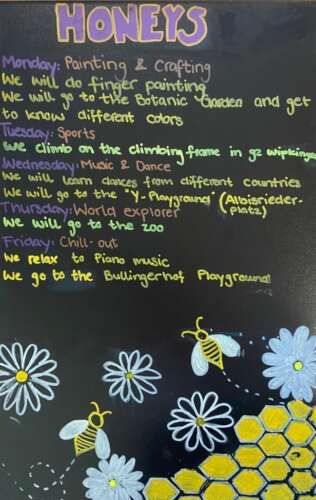 HONEYS
Monday: Painting & Crafting
We will do finger painting
We will go to the Botanic Garden and get
to know different colors
Tuesday: Sports
We climb on the climbing frame in gz wipkingen
Wednesday: Music & Dance
We will learn dances from different countries
We will go to the "Y-Playground" (Albisrieder-
platz)
Thursday: World explorer
We will go to the zoo
Friday: Chill-out
We relax to Piano music
We go to the Bullingerhof Playground